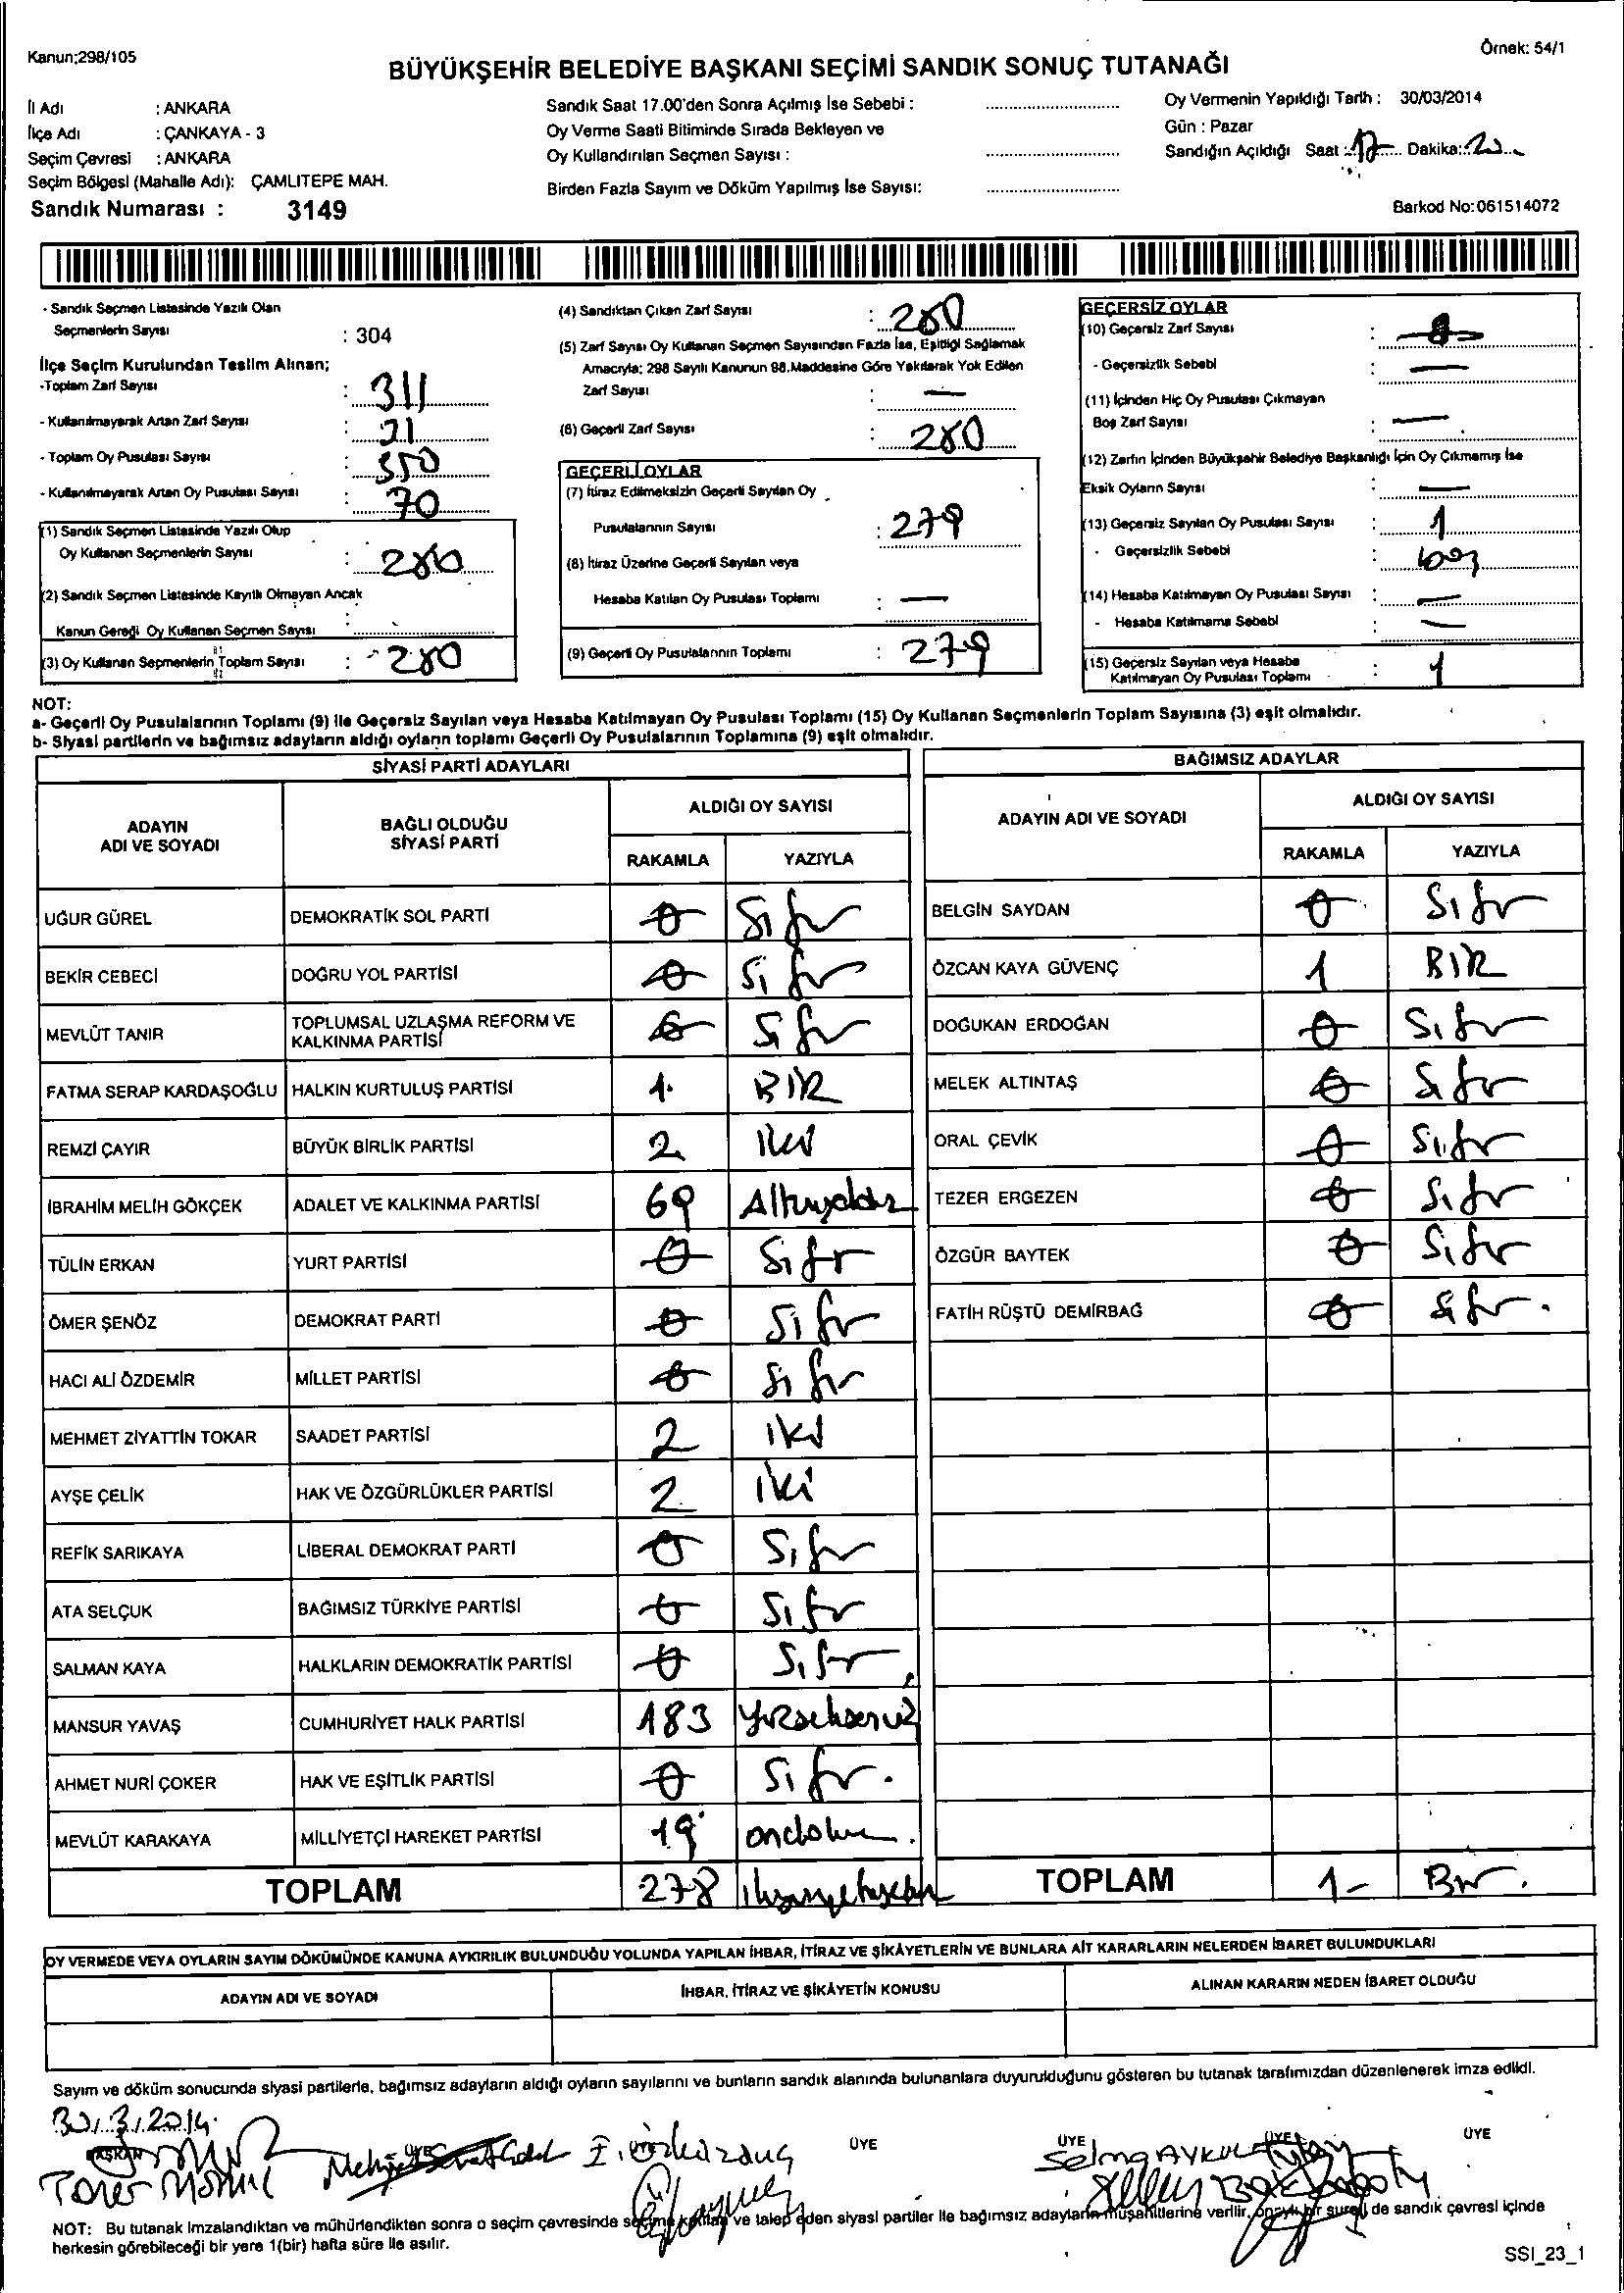 Kanun:298/105
Örnek: 54/1
BÜYÜKŞEHİR BELEDİYE BAŞKANI SEÇİMİ SANDIK SONUÇ TUTANAĞI
İl Adı : ANKARA
İlçe Adı : ÇANKAYA - 3
Seçim Çevresi : ANKARA
Seçim Bölgesi (Mahalle Adı): ÇAMLITEPE MAH.
Sandık Numarası : 3149
Sandık Saat 17.00'den Sonra Açılmış İse Sebebi :
Oy Verme Saati Bitiminde Sırada Bekleyen ve
Oy Kullandırılan Seçmen Sayısı :
Birden Fazla Sayım ve Döküm Yapılmış İse Sayısı:
Oy Vermenin Yapıldığı Tarih : 30/03/2014
Gün : Pazar
Sandığın Açıldığı Saat : 17 Dakika: 20
Barkod No:061514072
- Sandık Seçmen Listesinde Yazılı Olan
Seçmenlerin Sayısı : 304
İlçe Seçim Kurulundan Teslim Alınan;
-Toplam Zarf Sayısı : 311
- Kullanılmayarak Artan Zarf Sayısı : 31
- Toplam Oy Pusulası Sayısı : 350
- Kullanılmayarak Artan Oy Pusulası Sayısı : 70
(1) Sandık Seçmen Listesinde Yazılı Olup
Oy Kullanan Seçmenlerin Sayısı : 280
(2) Sandık Seçmen Listesinde Kayıtlı Olmayan Ancak
Kanun Gereği Oy Kullanan Seçmen Sayısı :
(3) Oy Kullanan Seçmenlerin Toplam Sayısı : 280
(4) Sandıktan Çıkan Zarf Sayısı : 280
(5) Zarf Sayısı Oy Kullanan Seçmen Sayısından Fazla İse, Eşitliği Sağlamak
Amacıyla; 298 Sayılı Kanunun 98.Maddesine Göre Yakılarak Yok Edilen
Zarf Sayısı : —
(6) Geçerli Zarf Sayısı : 280
GEÇERLİ OYLAR
(7) İtiraz Edilmeksizin Geçerli Sayılan Oy
Pusulalarının Sayısı : 279
(8) İtiraz Üzerine Geçerli Sayılan veya
Hesaba Katılan Oy Pusulası Toplamı : —
(9) Geçerli Oy Pusulalarının Toplamı : 279
GEÇERSİZ OYLAR
(10) Geçersiz Zarf Sayısı : 0
- Geçersizlik Sebebi : —
(11) İçinden Hiç Oy Pusulası Çıkmayan
Boş Zarf Sayısı : —
(12) Zarfın İçinden Büyükşehir Belediye Başkanlığı İçin Oy Çıkmamış İse
Eksik Oyların Sayısı : —
(13) Geçersiz Sayılan Oy Pusulası Sayısı : 1
- Geçersizlik Sebebi : boş
(14) Hesaba Katılmayan Oy Pusulası Sayısı : —
- Hesaba Katılmama Sebebi : —
(15) Geçersiz Sayılan veya Hesaba
Katılmayan Oy Pusulası Toplamı : 1
NOT:
a- Geçerli Oy Pusulalarının Toplamı (9) ile Geçersiz Sayılan veya Hesaba Katılmayan Oy Pusulası Toplamı (15) Oy Kullanan Seçmenlerin Toplam Sayısına (3) eşit olmalıdır.
b- Siyasi partilerin ve bağımsız adayların aldığı oyların toplamı Geçerli Oy Pusulalarının Toplamına (9) eşit olmalıdır.
SİYASİ PARTİ ADAYLARI
ADAYIN ADI VE SOYADI
BAĞLI OLDUĞU SİYASİ PARTİ
ALDIĞI OY SAYISI
RAKAMLA YAZIYLA
UĞUR GÜREL DEMOKRATİK SOL PARTİ 0 Sıfır
BEKİR CEBECİ DOĞRU YOL PARTİSİ 0 Sıfır
MEVLÜT TANIR TOPLUMSAL UZLAŞMA REFORM VE KALKINMA PARTİSİ 0 Sıfır
FATMA SERAP KARDAŞOĞLU HALKIN KURTULUŞ PARTİSİ 1 BİR
REMZİ ÇAYIR BÜYÜK BİRLİK PARTİSİ 2 iki
İBRAHİM MELİH GÖKÇEK ADALET VE KALKINMA PARTİSİ 69 Altmışdokuz
TÜLİN ERKAN YURT PARTİSİ 0 Sıfır
ÖMER ŞENÖZ DEMOKRAT PARTİ 0 Sıfır
HACI ALİ ÖZDEMİR MİLLET PARTİSİ 0 Sıfır
MEHMET ZİYATTİN TOKAR SAADET PARTİSİ 2 iki
AYŞE ÇELİK HAK VE ÖZGÜRLÜKLER PARTİSİ 2 iki
REFİK SARIKAYA LİBERAL DEMOKRAT PARTİ 0 Sıfır
ATA SELÇUK BAĞIMSIZ TÜRKİYE PARTİSİ 0 Sıfır
SALMAN KAYA HALKLARIN DEMOKRATİK PARTİSİ 0 Sıfır
MANSUR YAVAŞ CUMHURİYET HALK PARTİSİ 183 Yüzseksenüç
AHMET NURİ ÇOKER HAK VE EŞİTLİK PARTİSİ 0 Sıfır.
MEVLÜT KARAKAYA MİLLİYETÇİ HAREKET PARTİSİ 19 ondokuz
TOPLAM 278 ikiyüzyetmişsekiz
BAĞIMSIZ ADAYLAR
ADAYIN ADI VE SOYADI
ALDIĞI OY SAYISI
RAKAMLA YAZIYLA
BELGİN SAYDAN 0 Sıfır
ÖZCAN KAYA GÜVENÇ 1 BİR
DOĞUKAN ERDOĞAN 0 Sıfır
MELEK ALTINTAŞ 0 Sıfır
ORAL ÇEVİK 0 Sıfır
TEZER ERGEZEN 0 Sıfır
ÖZGÜR BAYTEK 0 Sıfır
FATİH RÜŞTÜ DEMİRBAĞ 0 Sıfır.
TOPLAM 1- Bir.
OY VERMEDE VEYA OYLARIN SAYIM DÖKÜMÜNDE KANUNA AYKIRILIK BULUNDUĞU YOLUNDA YAPILAN İHBAR, İTİRAZ VE ŞİKÂYETLERİN VE BUNLARA AİT KARARLARIN NELERDEN İBARET BULUNDUKLARI
ADAYIN ADI VE SOYADI
İHBAR, İTİRAZ VE ŞİKÂYETİN KONUSU
ALINAN KARARIN NEDEN İBARET OLDUĞU
Sayım ve döküm sonucunda siyasi partilerle, bağımsız adayların aldığı oyların sayılarını ve bunların sandık alanında bulunanlara duyurulduğunu gösteren bu tutanak tarafımızdan düzenlenerek imza edildi.
30.3.2014
BAŞKAN ÜYE ÜYE ÜYE ÜYE ÜYE
Selma AYKUL
NOT: Bu tutanak imzalandıktan ve mühürlendikten sonra o seçim çevresinde seçime katılan ve talep eden siyasi partiler ile bağımsız adayların müşahitlerine verilir, onaylı bir sureti de sandık çevresi içinde
herkesin görebileceği bir yere 1(bir) hafta süre ile asılır.
SSI_23_1